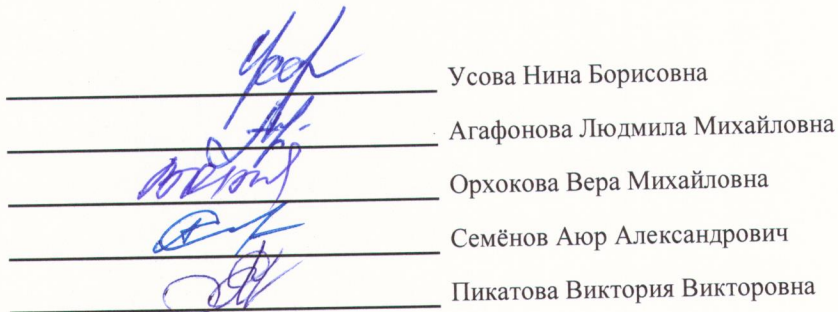 Усова Нина Борисовна
Агафонова Людмила Михайловна
Орхокова Вера Михайловна
Семёнов Аюр Александрович
Пикатова Виктория Викторовна